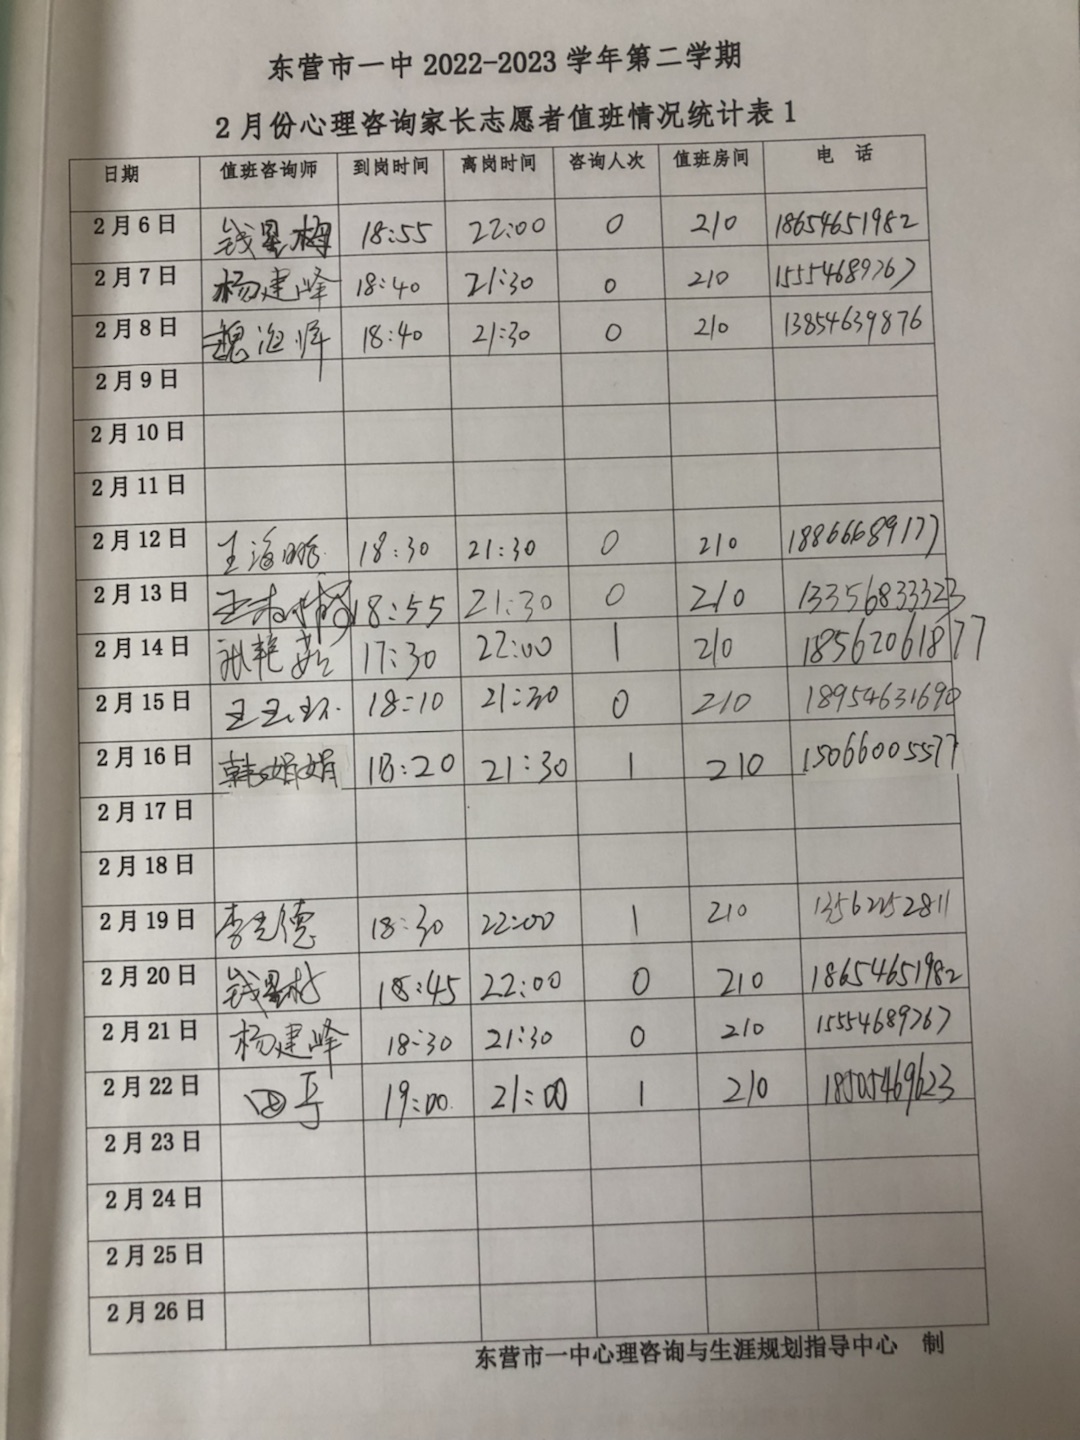 东营市一中 2022-2023 学年第二学期
2 月份心理咨询家长志愿者值班情况统计表 1
日期 值班咨询师 到岗时间 离岗时间 咨询人次 值班房间 电 话
2 月 6 日 钱星梅 18:55 22:00 0 210 18654651982
2 月 7 日 杨建峰 18:40 21:30 0 210 15554689767
2 月 8 日 魏海 18:40 21:30 0 210 13854639876
2 月 9 日
2 月 10 日
2 月 11 日
2 月 12 日 王海 18:30 21:30 0 210 18866689177
2 月 13 日 王 18:55 21:30 0 210 13356833323
2 月 14 日 张艳 17:30 22:00 1 210 18562061877
2 月 15 日 王玉环 18:10 21:30 0 210 18954631690
2 月 16 日 韩娟娟 18:20 21:30 1 210 15066005577
2 月 17 日
2 月 18 日
2 月 19 日 李光德 18:30 22:00 1 210 13562252811
2 月 20 日 钱星梅 18:45 22:00 0 210 18654651982
2 月 21 日 杨建峰 18:30 21:30 0 210 15554689767
2 月 22 日 19:00 21:00 1 210 18505469623
2 月 23 日
2 月 24 日
2 月 25 日
2 月 26 日
东营市一中心理咨询与生涯规划指导中心 制